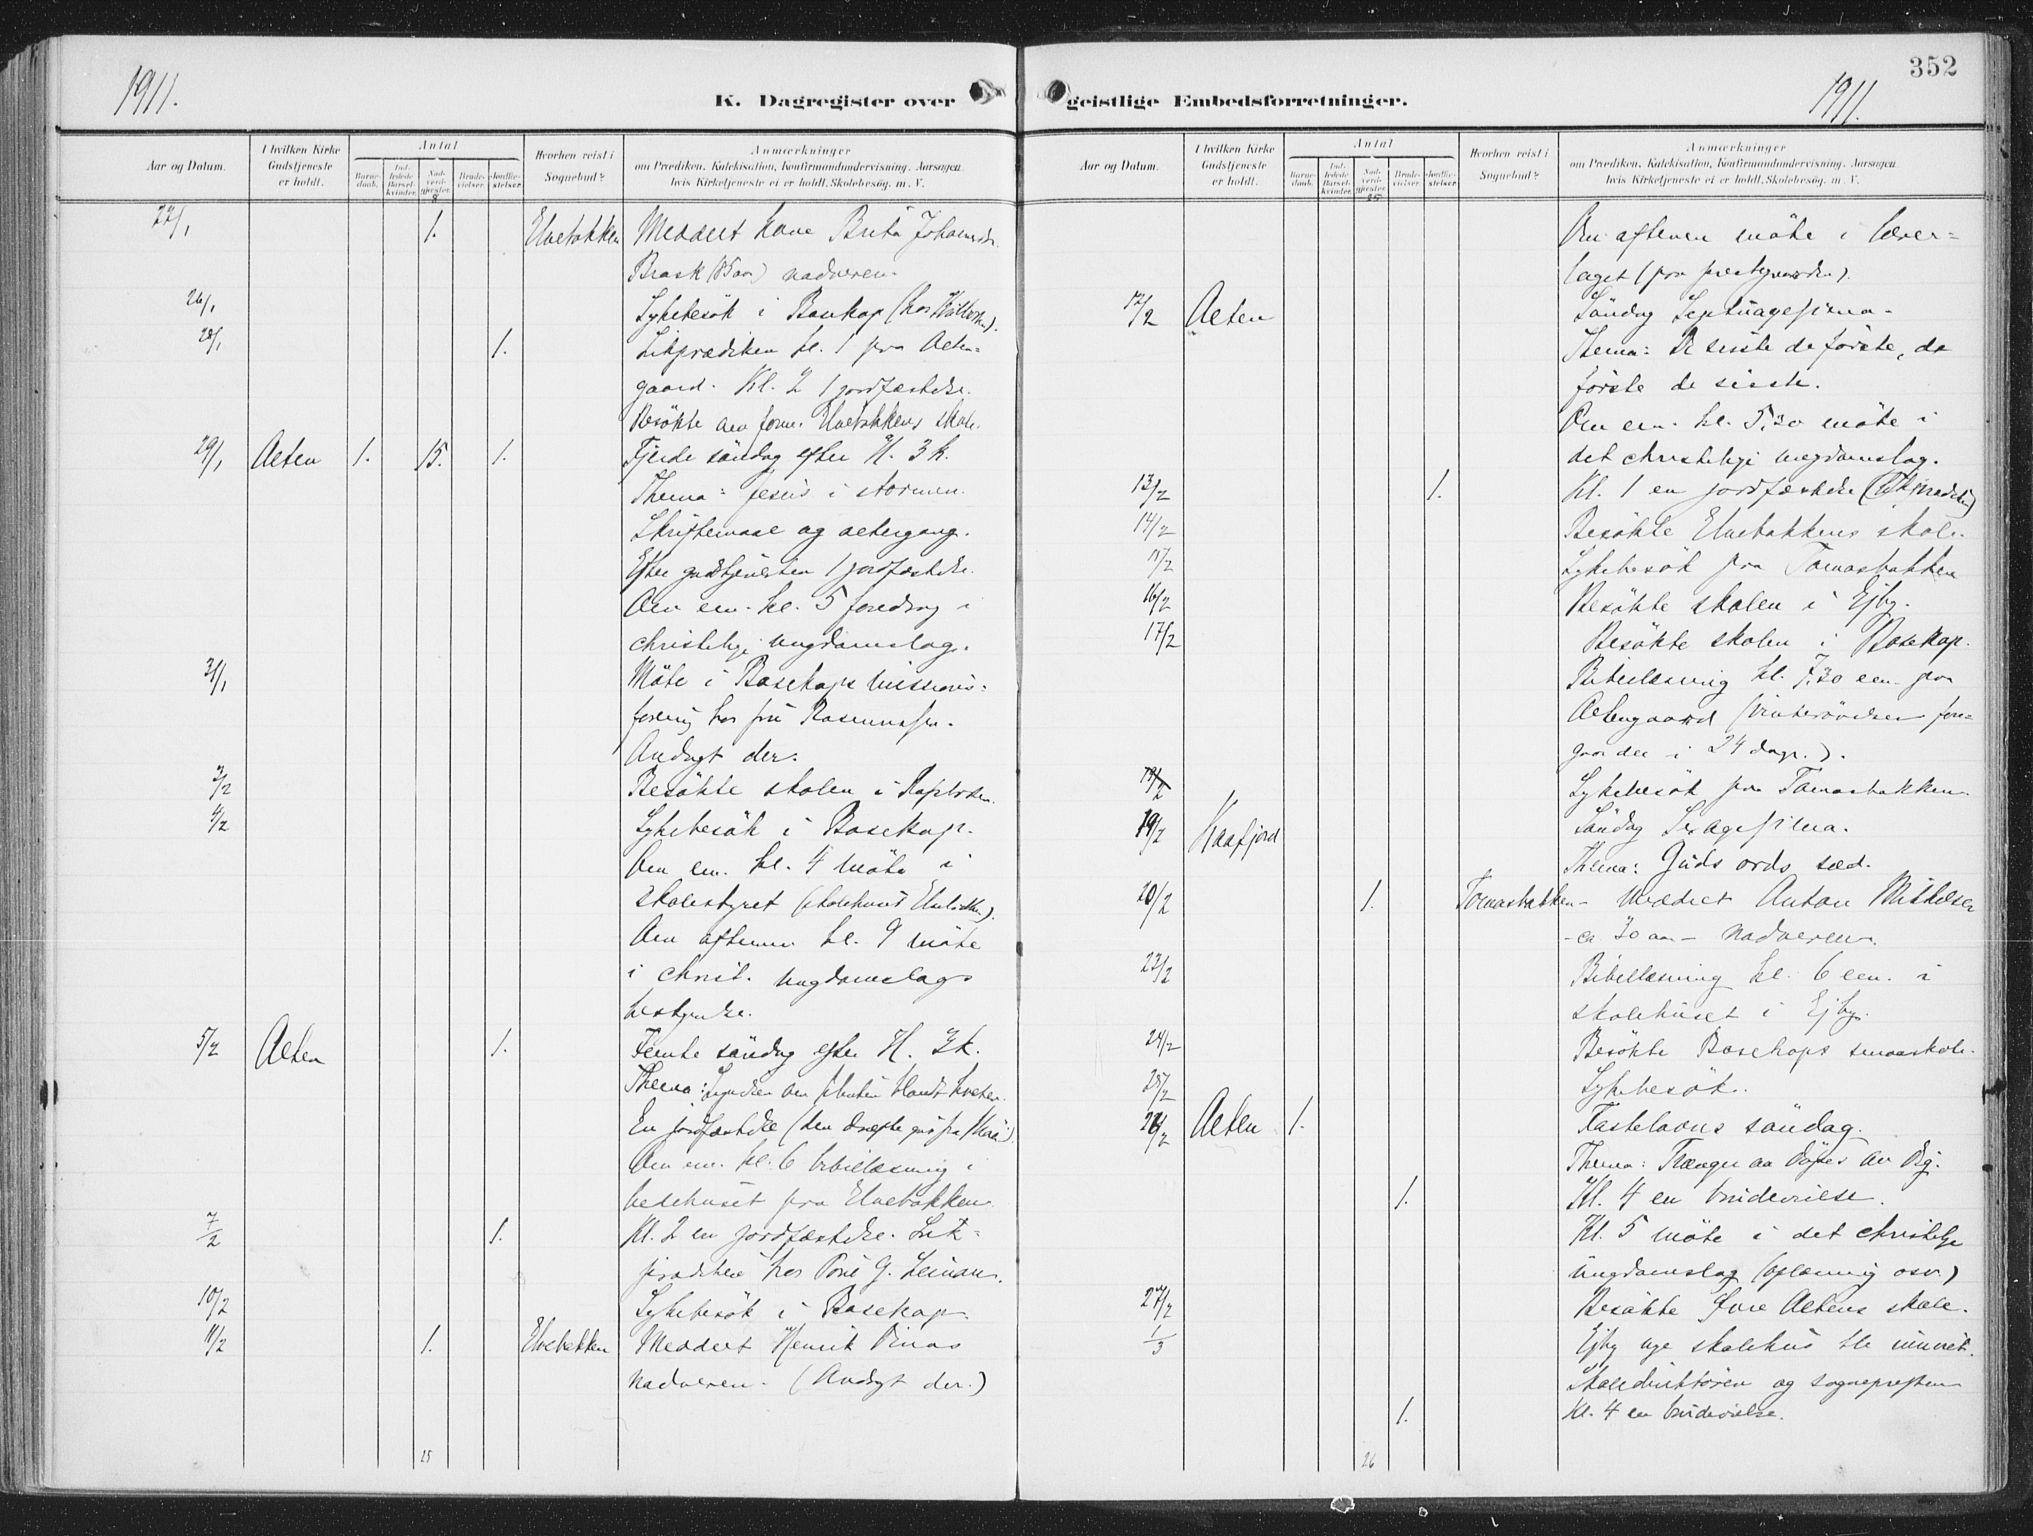 352
1911.
1911.
K. Dagregister over geistlige Embedsforretninger.
Aar og Datum.
I hvilken Kirke Gudstjeneste er holdt.
Antal
Barnedaab.
Indledede Barselkvinder.
Nadverdgjester.
Brudevielser.
Jordfæstelser.
Hvorhen reist i Sognebud?
Anmærkninger
om Prædiken, Katekisation, Konfirmandundervisning, Aarsagen,
hvis Kirketjeneste ei er holdt, Skolebesøg, m. V.
9
22/1 1. Elvebakken Meddelt kone Brita Johannesdr.
Brask (85 aar) nadveren.
26/1 Sykebesök i Bosekop
28/1 1. Likprædiken kl. 1 paa Alten-
gaard. Kl. 2 1 jordfæstelse.
Besökte om form. Elvebakkens skole.
29/1 Alten 1. 15. 1. Fjerde söndag efter H. 3 k.
Thema: Jesus i stormen.
Skriftemaal og altergang.
Efter gudstjenesten 1 jordfæstelse.
Om em. kl. 5 foredrag i
christelige ungdomslag.
31/1 Möte i Bosekops missions-
forening hos fru
Andagt der.
3/2 Besökte skolen i
4/2 Sykebesök i Bosekop.
Om em. kl. 4 möte i
skolestyret (skolehuset Elvebakken).
Om aftenen kl. 9 möte
i christ. ungdomslags
bestyrelse.
5/2 Alten 1. Femte söndag efter H. 3 k.
Thema: om klinten blandt hveten.
En jordfæstelse
Om em. kl. 6 bibellæsning i
bedehuset paa Elvebakken
7/2 1. Kl. 2 en jordfæstelse. Lik-
prædiken hos
10/2 Sykebesök i Bosekop
11/2 1. Elvebakken Meddelt Henrik
nadveren. (Andagt der.)
25
Aar og Datum.
I hvilken Kirke Gudstjeneste er holdt.
Antal
Barnedaab.
Indledede Barselkvinder.
Nadverdgjester.
Brudevielser.
Jordfæstelser.
Hvorhen reist i Sognebud?
Anmærkninger
om Prædiken, Katekisation, Konfirmandundervisning, Aarsagen,
hvis Kirketjeneste ei er holdt, Skolebesøg, m. V.
25
Om aftenen möte i lærer-
laget (paa prestegaarden).
12/2 Alten Söndag Septuagesima.
Thema: De sisste de förste, de
förste de sisste.
Om em. kl. 5,30 möte i
det christelige ungdomslag.
13/2 1. Kl. 1 en jordfæstelse (Likprædiken)
14/2 Besökte Elvebakkens skole.
Sykebesök paa Tomasbakken
16/2 Besökte skolen i Ejby.
17/2 Besökte skolen i Bosekop.
Bibellæsning kl. 7,30 em. paa
Altengaard (vinterövelser fore-
gaar der i 24 dage.).
Sykebesök paa Tomasbakken.
19/2 Kaafjord Söndag Sexagesima.
Thema: Guds ords sæd.
20/2 1. Tomasbakken - Meddelt Anton Mikkelsen
- ca 30 aar - nadveren.
23/2 Bibellæsning kl. 6 em. i
skolehuset i Ejby.
24/2 Besökte Bosekops smaaskole.
25/2 Sykebesök.
26/2 Alten 1. Fastelavns söndag.
Thema: Trænger at döpes av Dig.
1. Kl. 4 en brudevielse.
Kl. 5 möte i det christelige
ungdomslag (oplæsning osv.)
27/2 Besökte Övre Altens skole.
1/3 Ejby nye skolehus ble innviet.
Skoledirektören og sognepresten
1. Kl. 4 en brudevielse.
26